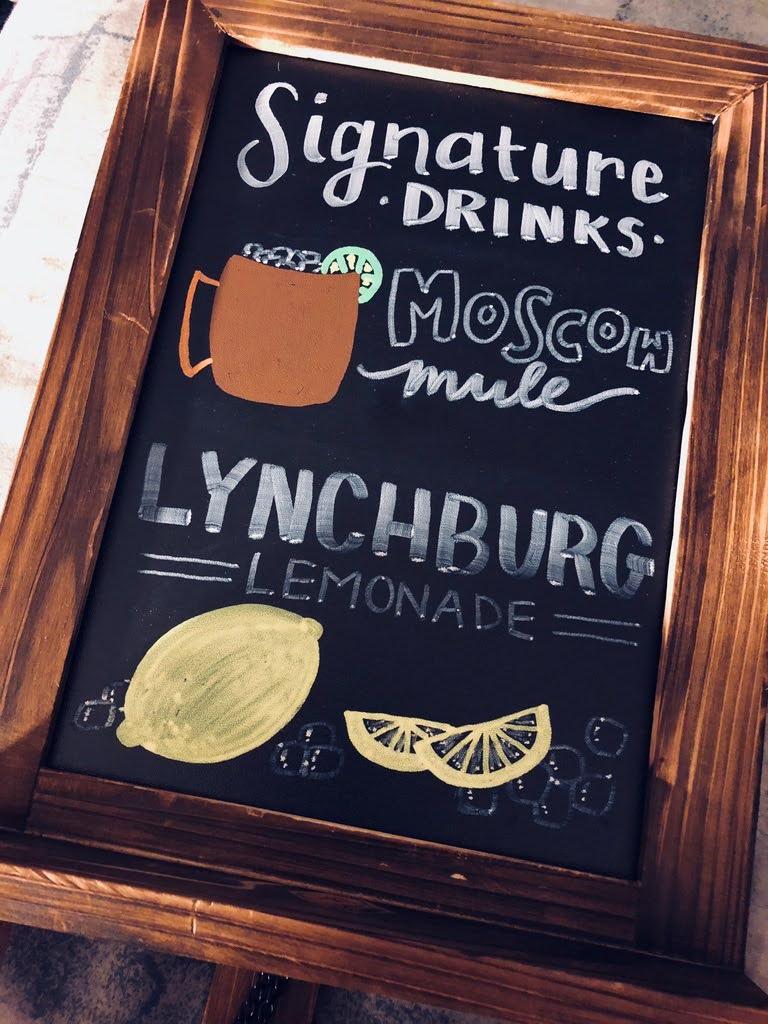 Signature
· DRINKS ·
MOSCOW
mule
LYNCHBURG
LEMONADE